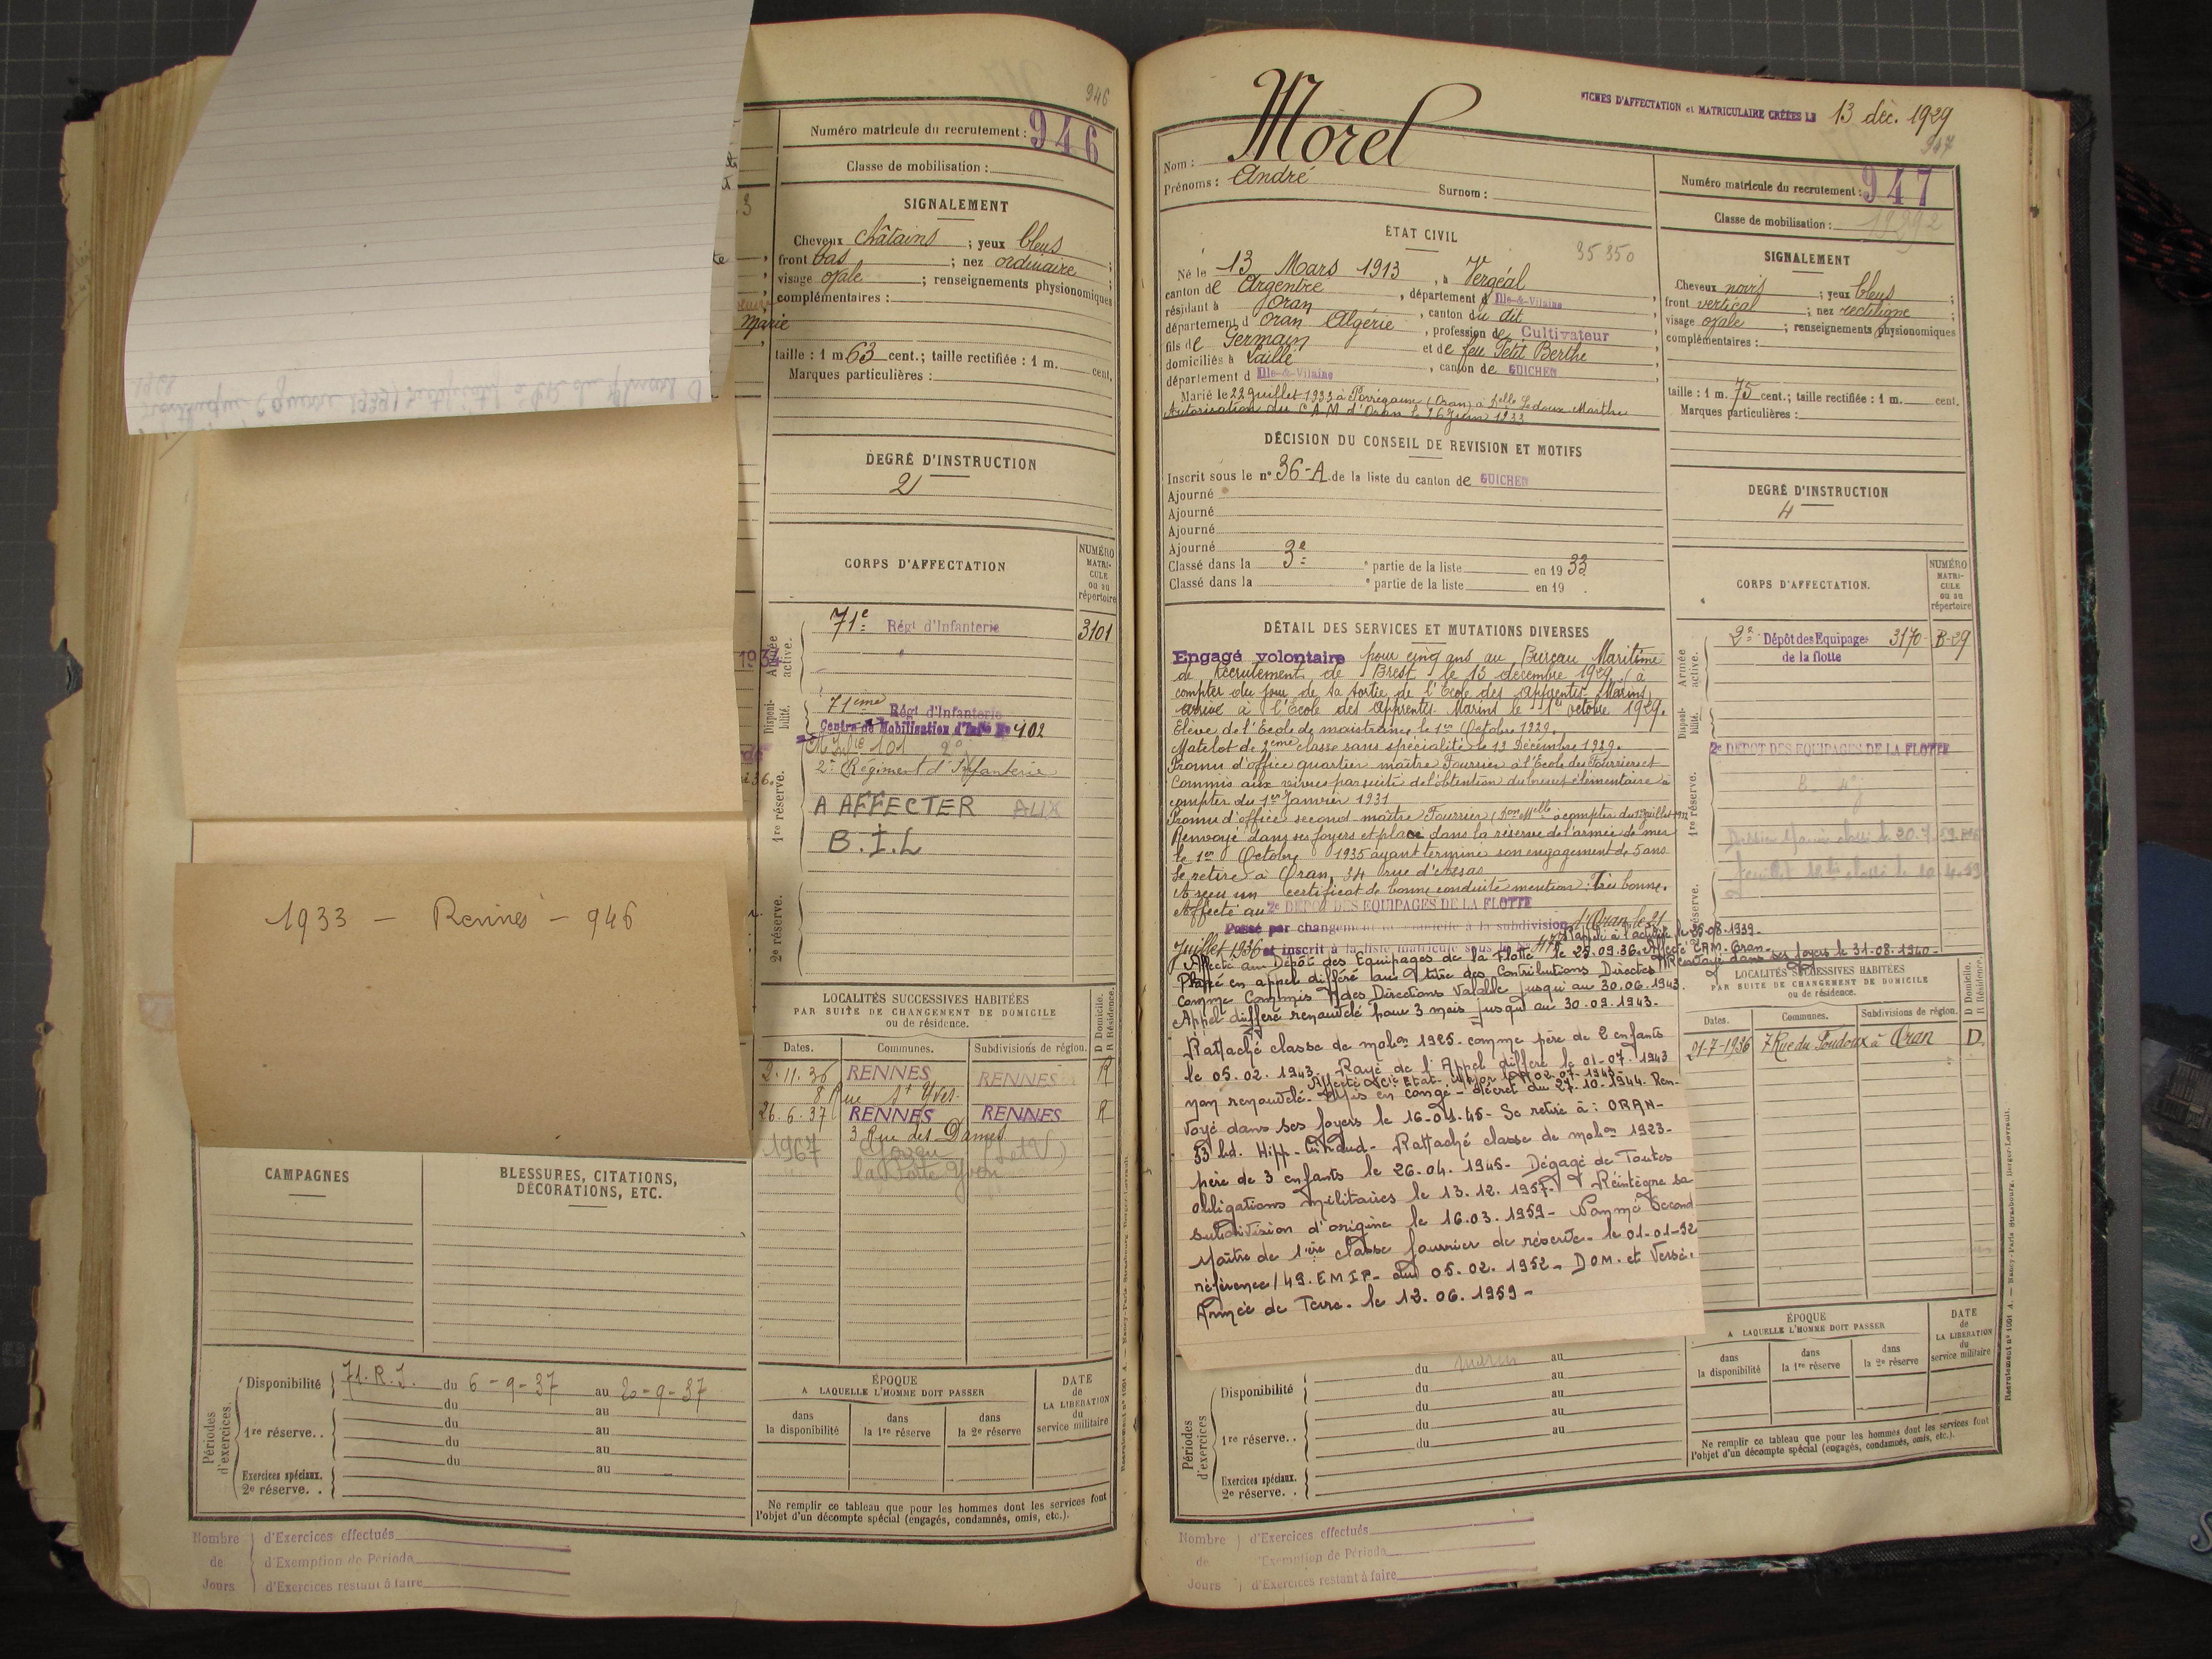 946
Numéro matricule du recrutement : 946
Classe de mobilisation :
SIGNALEMENT
Cheveux châtains ; yeux bleus
front bas ; nez ordinaire ;
visage ovale ; renseignements physionomiques
complémentaires :
Marie
taille : 1 m 63 cent.; taille rectifiée : 1 m. cent.
Marques particulières :
DEGRÉ D'INSTRUCTION
2
CORPS D'AFFECTATION
NUMÉRO MATRICULE ou au répertoire
Armée active.
71e Régt d'Infanterie 3101
Disponibilité.
71ème Régt d'Infanterie
Centre de Mobilisation d'Infie No 402
1re réserve.
2e Régiment d'Infanterie
A AFFECTER AUX
B.I.L
2e réserve.
1933 — Rennes — 946
LOCALITÉS SUCCESSIVES HABITÉES
PAR SUITE DE CHANGEMENT DE DOMICILE
ou de résidence.
D Domicile. R Résidence.
Dates. Communes. Subdivisions de région.
2.11.36 RENNES RENNES R
8 Rue St Yves
26.6.37 RENNES RENNES R
3 Rue des Dames
1967
CAMPAGNES
BLESSURES, CITATIONS,
DÉCORATIONS, ETC.
Périodes d'exercices.
Disponibilité 71. R.I. du 6-9-37 au 20-9-37
du au
1re réserve. . du au
du au
du au
Exercices spéciaux.
2e réserve. .
ÉPOQUE
A LAQUELLE L'HOMME DOIT PASSER
dans la disponibilité
dans la 1re réserve
dans la 2e réserve
DATE de LA LIBÉRATION du service militaire
Ne remplir ce tableau que pour les hommes dont les services font
l'objet d'un décompte spécial (engagés, condamnés, omis, etc.).
Nombre d'Exercices effectués
de d'Exemption de Période
Jours d'Exercices restant à faire
FICHES D'AFFECTATION et MATRICULAIRE CRÉÉES LE 13 déc. 1929
947
Nom : Morel
Prénoms : André Surnom :
Numéro matricule du recrutement : 947
Classe de mobilisation :
ÉTAT CIVIL
35 350
Né le 13 Mars 1913, à Vergéal
canton de Argentré, département d Ille-&-Vilaine
résidant à Oran, canton du dit
département d Oran Algérie, profession de Cultivateur
fils de Germain et de feu Petit Berthe
domiciliés à Laillé, canton de GUICHEN
département d Ille-&-Vilaine
Marié le 22 Juillet 1933 à Perrégaux (Oran) à Delle Ledoux Marthe
Autorisation du C.A.M d'Oran le 26 Juin 1933
SIGNALEMENT
Cheveux noirs ; yeux bleus ;
front vertical ; nez rectiligne ;
visage ovale ; renseignements physionomiques
complémentaires :
taille : 1 m. 75 cent.; taille rectifiée : 1 m. cent.
Marques particulières :
DÉCISION DU CONSEIL DE REVISION ET MOTIFS
Inscrit sous le n° 36-A de la liste du canton de GUICHEN
Ajourné
Ajourné
Ajourné
Ajourné
Classé dans la 3e partie de la liste en 1933
Classé dans la e partie de la liste en 19 .
DEGRÉ D'INSTRUCTION
4
CORPS D'AFFECTATION.
NUMÉRO MATRICULE ou au répertoire
Armée active.
2e Dépôt des Equipages 3170 B-29
de la flotte
Disponibilité.
2e DEPOT DES EQUIPAGES DE LA FLOTTE
1re réserve.
2e réserve.
DÉTAIL DES SERVICES ET MUTATIONS DIVERSES
Engagé volontaire pour cinq ans au Bureau Maritime
de Recrutement de Brest le 13 décembre 1929 (à
compter du jour de sa sortie de l'Ecole des apprentis-Marins)
arrivé à l'Ecole des apprentis Marins le 1er octobre 1929.
Elève de l'Ecole de maistrance le 1er Octobre 1929.
Matelot de 2ème classe sans spécialité le 13 Décembre 1929.
Promu d'office quartier maître Fourrier à l'Ecole des Fourriers et
Commis aux vivres par suite de l'obtention du brevet élémentaire à
compter du 1er Janvier 1931
Promu d'office second maître Fourrier à compter du 1er Juillet
Renvoyé dans ses foyers et placé dans la réserve de l'armée de mer
le 1er Octobre 1935 ayant terminé son engagement de 5 ans
Se retire à Oran, 34 rue d'Arzas
A reçu un certificat de bonne conduite mention : Très bonne.
Affecté au 2e DEPOT DES EQUIPAGES DE LA FLOTTE
Passé par changement de domicile à la subdivision d'Oran le 21
Juillet 1936 et inscrit à la liste matricule sous le No
Rappelé à l'activité le 26.08.1939.
Affecté au Dépôt des Equipages de la Flotte le 25.09.36. Affecté CAM. Oran.
Renvoyé dans ses foyers le 31.08.1940.
Placé en appel différé au titre des Contributions Directes
comme Commis des Directions Valable jusqu'au 30.06.1943.
Appel différé renouvelé pour 3 mois jusqu'au 30.09.1943.
Rattaché classe de mobon 1925. comme père de 2 enfants
le 05.02.1943. Rayé de l'Appel différé le 01-07-1943
non renouvelé. Mis en congé - décret du 27.10.1944. Ren-
voyé dans ses foyers le 16-01.45- Se retire à : ORAN-
53 bd. Hipp. Giraud- Rattaché classe de mobon 1923-
père de 3 enfants le 26.04.1945- Dégagé de Toutes
obligations militaires le 13.12.1957. Réintègre sa
subdivision d'origine le 16.03.1959- Nommé Second
Maître de 1ère classe fourrier de réserve. le 01-01-52
référence/49.EMIP- du 05.02.1952- DOM. et Versé.
Armée de Terre. le 12.06.1959-
LOCALITÉS SUCCESSIVES HABITÉES
PAR SUITE DE CHANGEMENT DE DOMICILE
ou de résidence.
D Domicile. R Résidence.
Dates. Communes. Subdivisions de région.
21-7-1936 7 Rue du à Oran D.
Périodes d'exercices.
du au
Disponibilité du au
du au
1re réserve. . du au
du au
Exercices spéciaux.
2e réserve. .
ÉPOQUE
A LAQUELLE L'HOMME DOIT PASSER
dans la disponibilité
dans la 1re réserve
dans la 2e réserve
DATE de LA LIBÉRATION du service militaire
Ne remplir ce tableau que pour les hommes dont les services font
l'objet d'un décompte spécial (engagés, condamnés, omis, etc.).
Recrutement n° 1601 A. — Nancy-Paris-Strasbourg, Berger-Levrault.
Nombre d'Exercices effectués
de d'Exemption de Période
Jours d'Exercices restant à faire